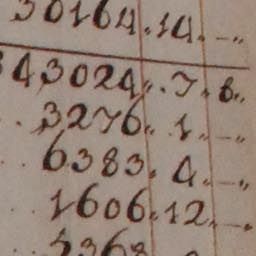 30164.14.—„
43024„.7.6„
3276„1„—„
6383.4„—„
1606.12„—„